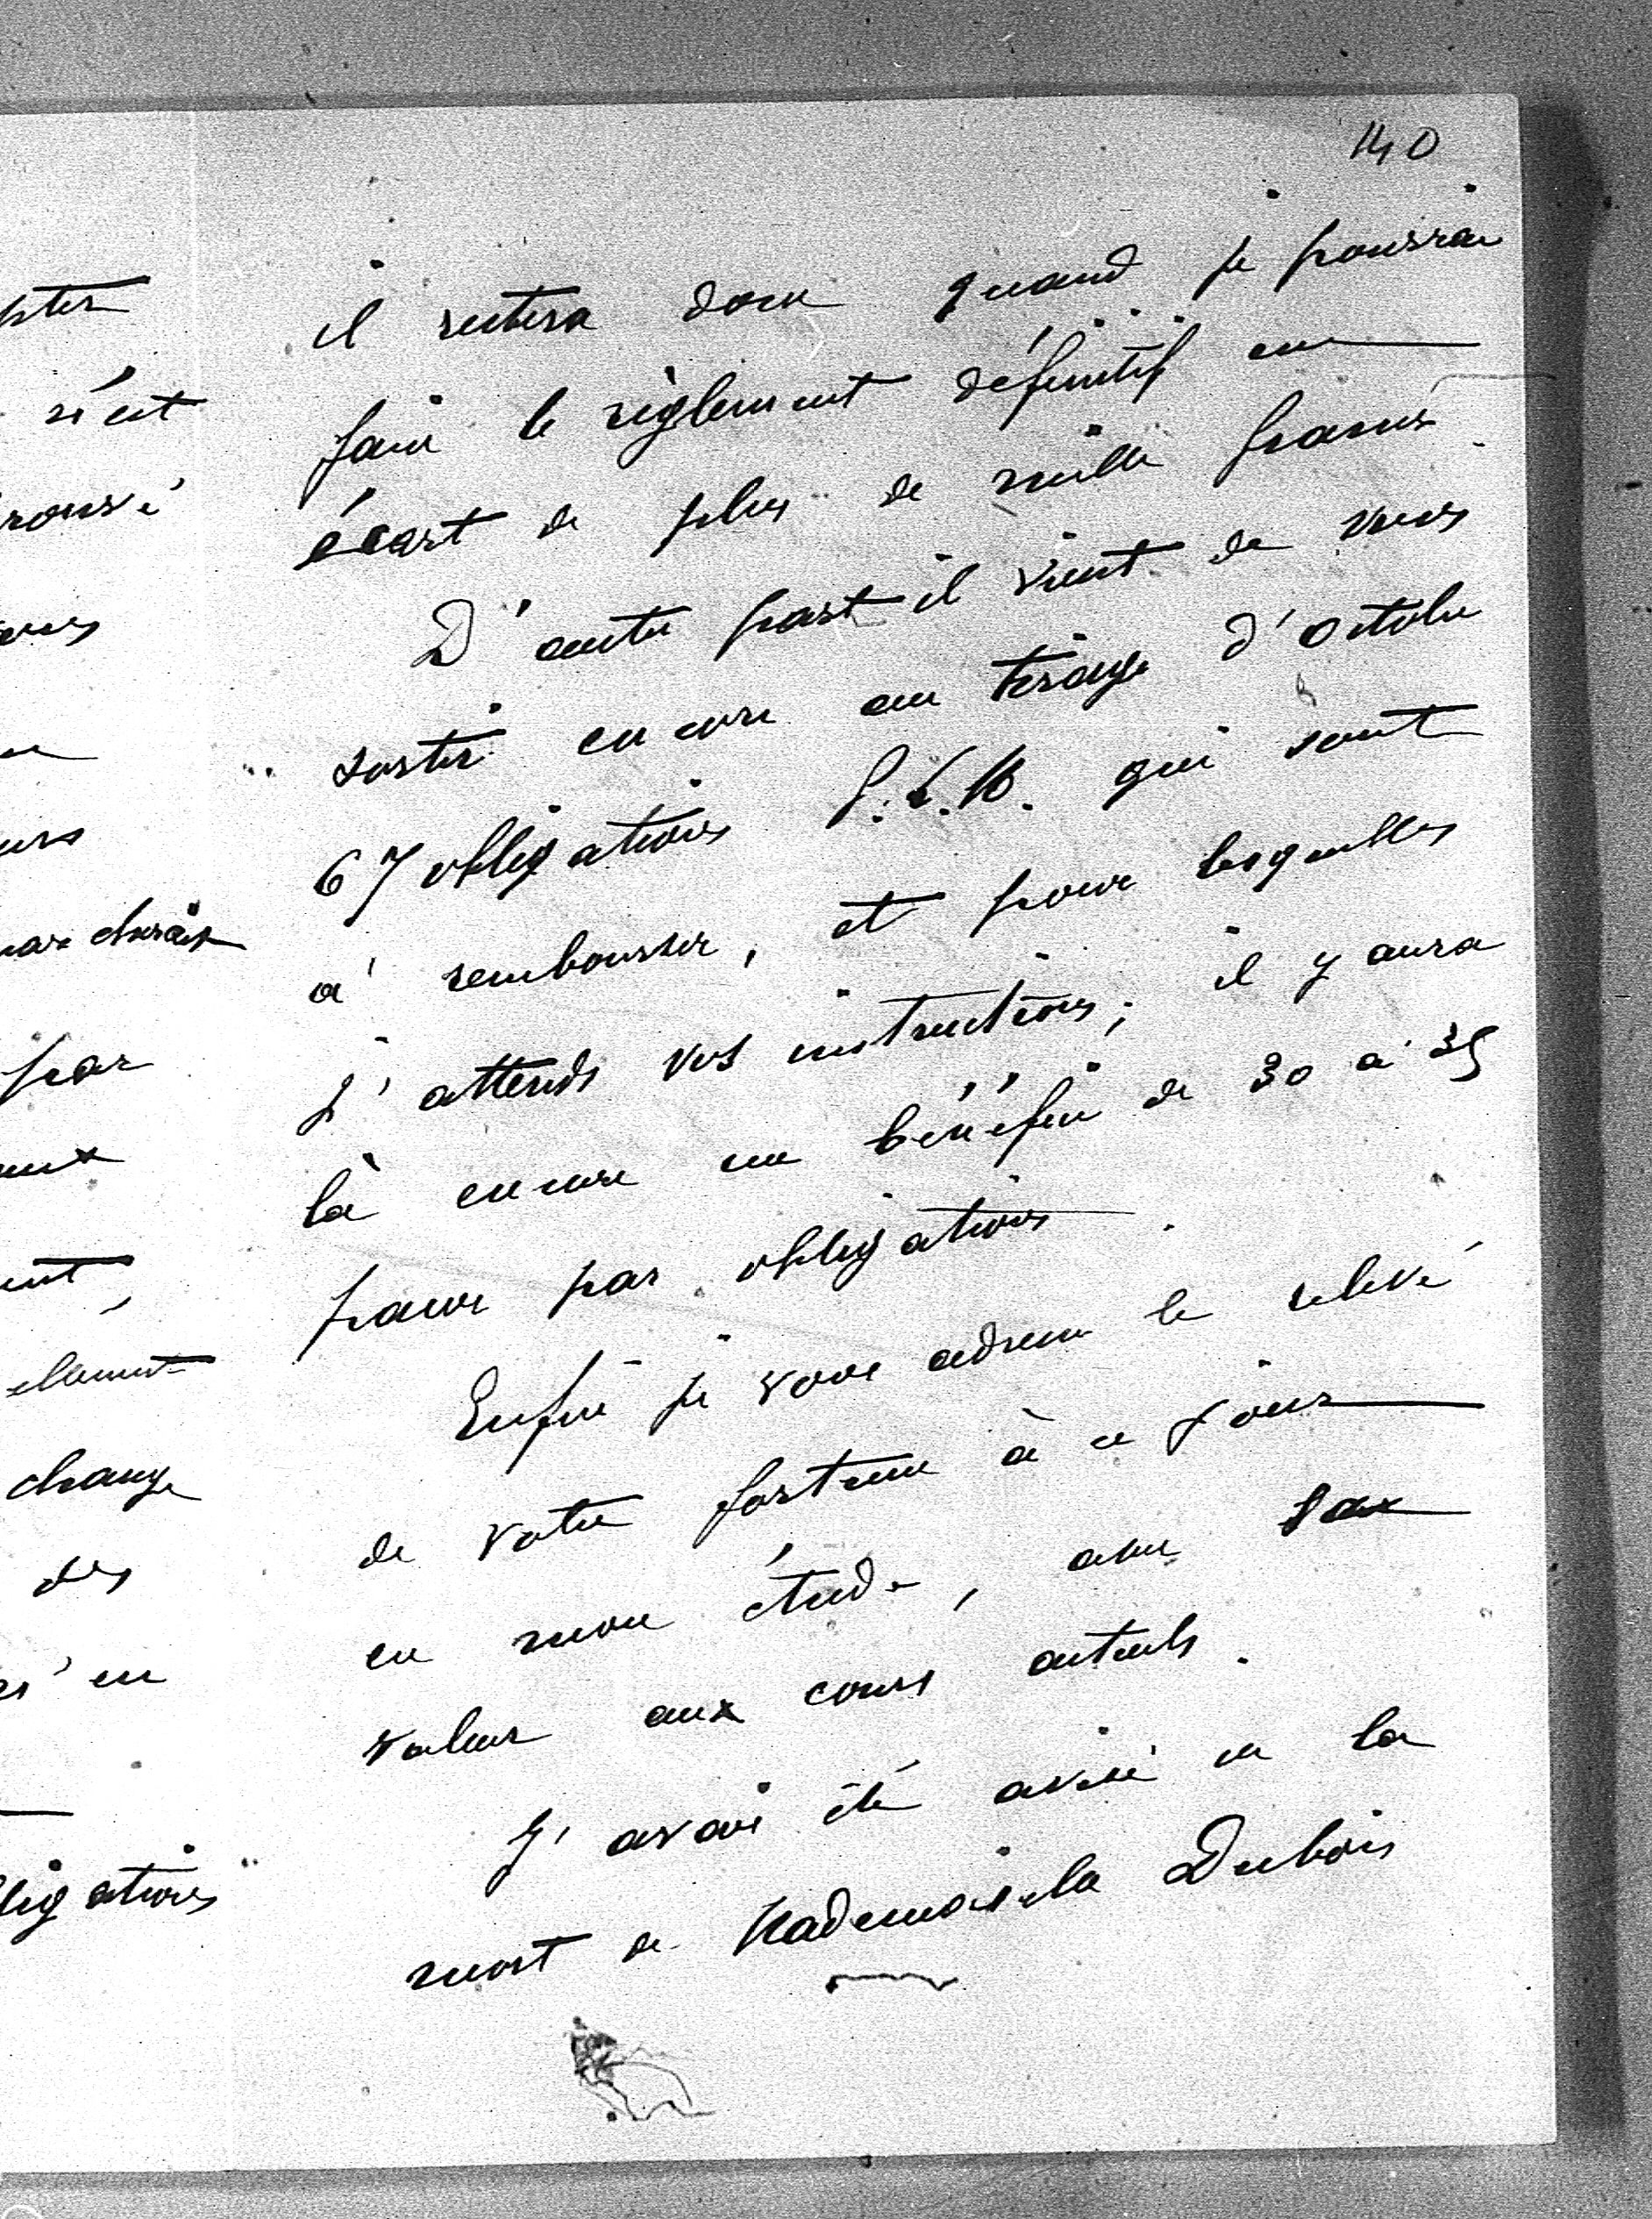 140
il restera donc quand je pourrai
faire le règlement définitif un
écart de plus de mille francs.
D'autre part il vient de vous
sortir encore au tirage d'octobre
67 obligations P.L.M. qui sont
à rembourser, et pour lesquelles
j'attends vos instructions; il y aura
là encore un bénéfice de 30 à 35
francs par obligations.
Enfin je vous adresse le relevé
de votre fortune à ce jour
en mon étude, avec sa
valeur aux cours actuels.
J'avais été avisé de la
mort de Mademoiselle Dubois
pter
n'est
rouvé
par
change
des
s'en
ligations